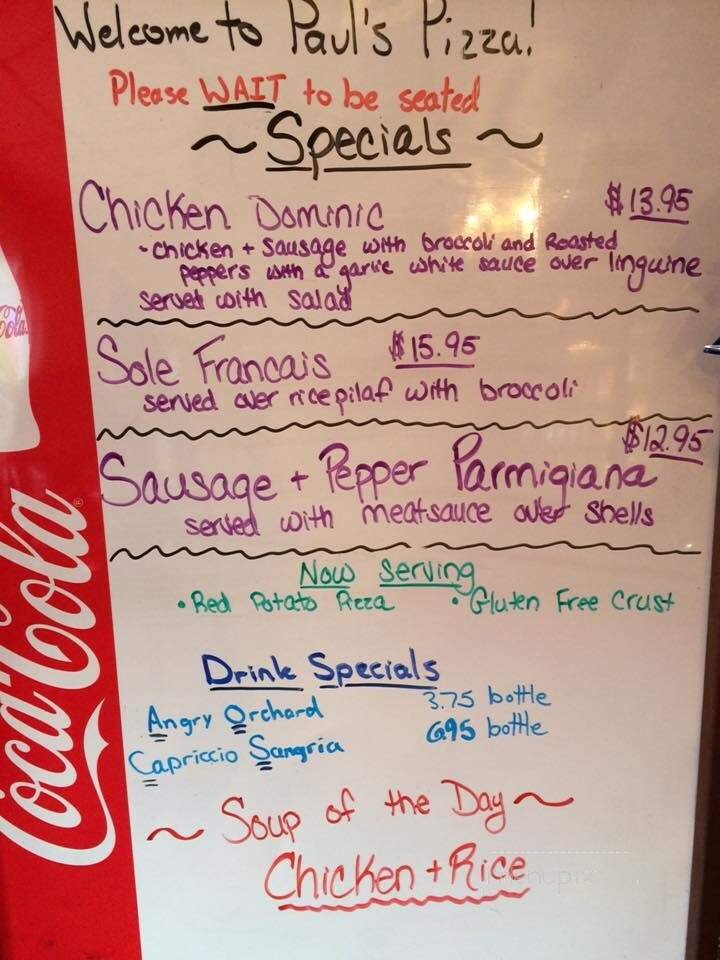 Welcome to Paul's Pizza!
Please WAIT to be seated
~ Specials ~
Chicken Dominic $13.95
- Chicken + Sausage with broccoli and Roasted
peppers with a garlic white sauce over linguine
served with salad
Sole Francais $15.95
served over rice pilaf with broccoli
$12.95
Sausage + Pepper Parmigiana
served with meatsauce over shells
Now Serving
• Red Potato Pizza • Gluten Free Crust
Drink Specials
Angry Orchard 3.75 bottle
Capriccio Sangria 6.95 bottle
~ Soup of the Day ~
Chicken + Rice
Coca-Cola
Cola
menupix